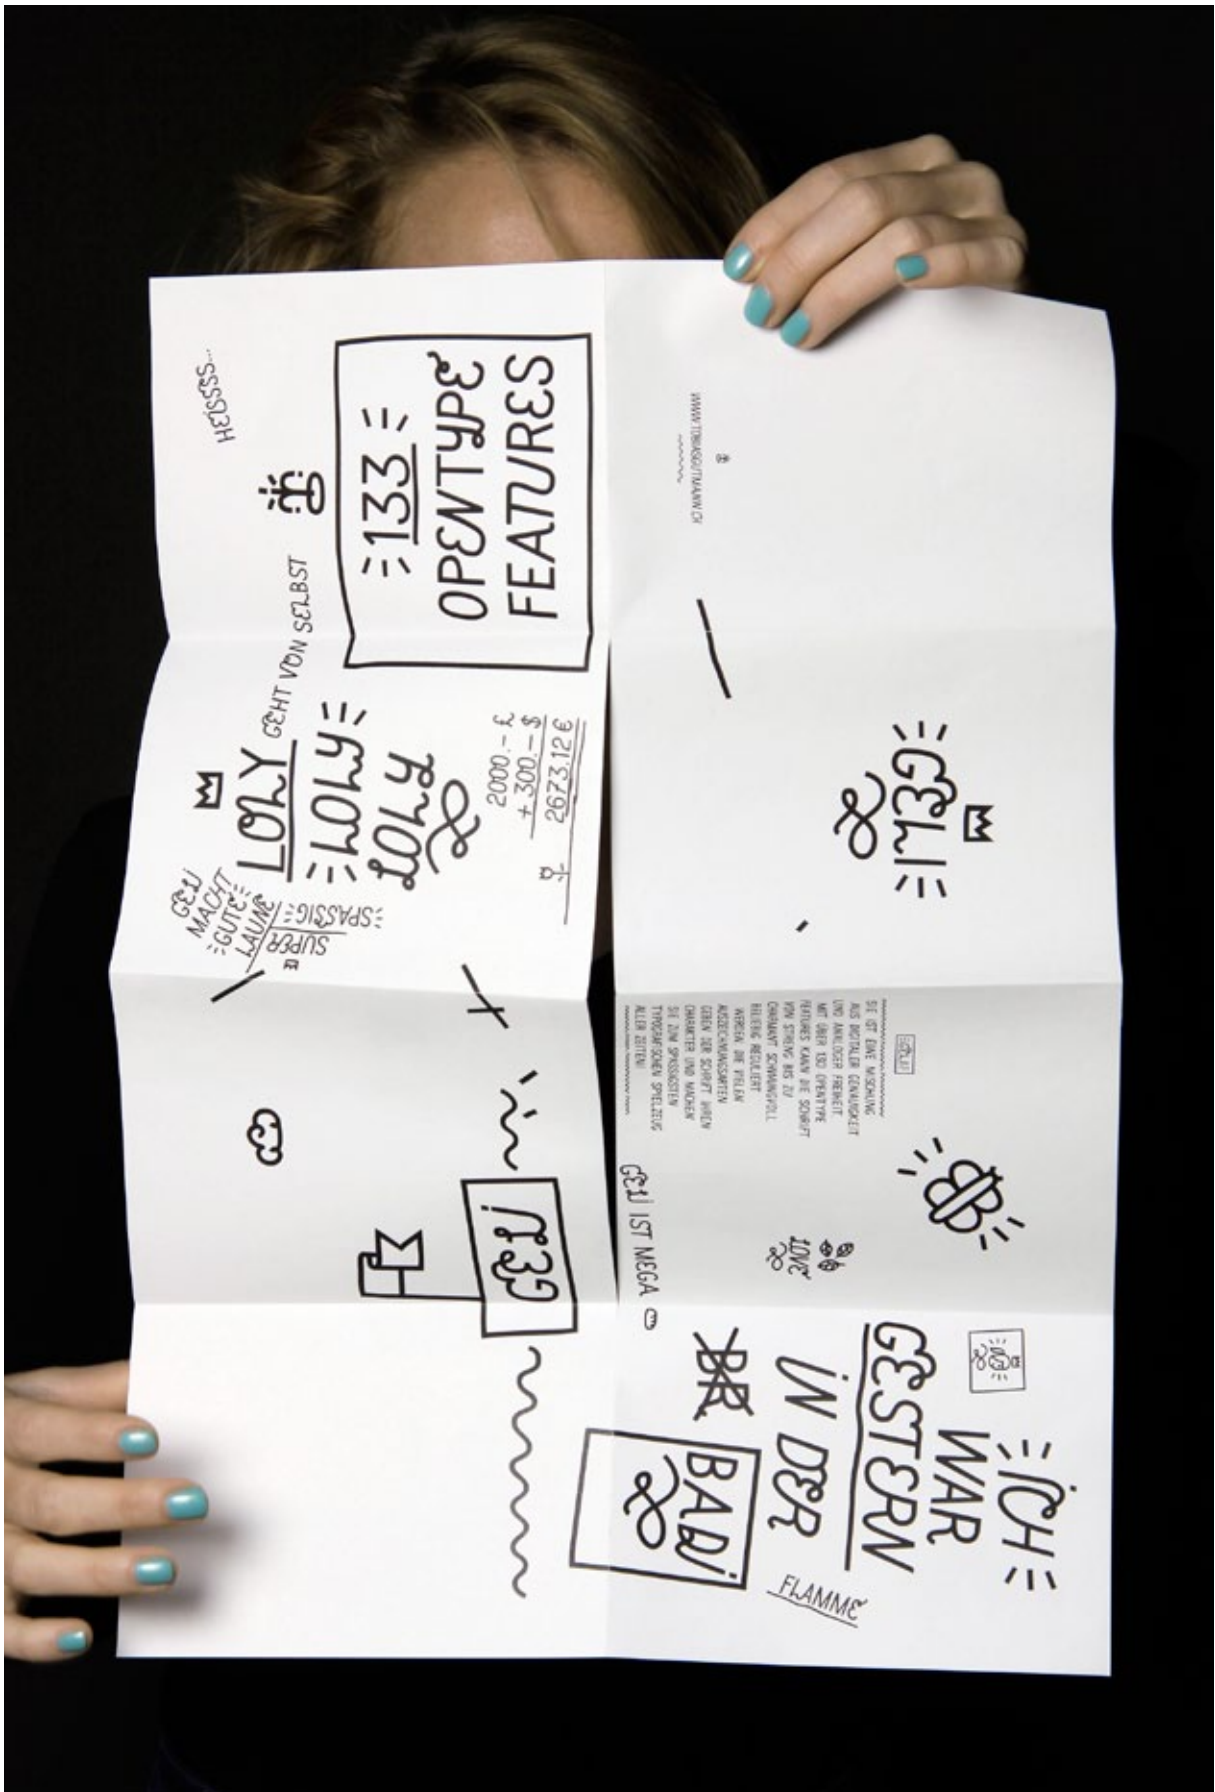 HEISSSS...
133
OPENTYPE
FEATURES
GEHT VON SELBST
LOLY
LOLY
LOLY
2000.– £
+ 300.– $
2673.12 €
GELI
MACHT
GUTE
LAUNE
SUPER
SPASSIG
GELI
WWW.TOBIASGUTMANN.CH
GELI
SIE IST EINE MISCHUNG
AUS DIGITALER GENAUIGKEIT
UND ANALOGER FREIHEIT.
MIT ÜBER 130 OPENTYPE
FEATURES KANN DIE SCHRIFT
VON STRENG BIS ZU
CHARMANT SCHWUNGVOLL
BELIEBIG REGULIERT
WERDEN. DIE VIELEN
AUSZEICHNUNGSARTEN
GEBEN DER SCHRIFT IHREN
CHARAKTER UND MACHEN
SIE ZUM SPASSIGSTEN
TYPOGRAFISCHEN SPIELZEUG
ALLER ZEITEN!
GELI IST MEGA
LOVE
ICH
WAR
GESTERN
IN DER
BR
BADI
FLAMME